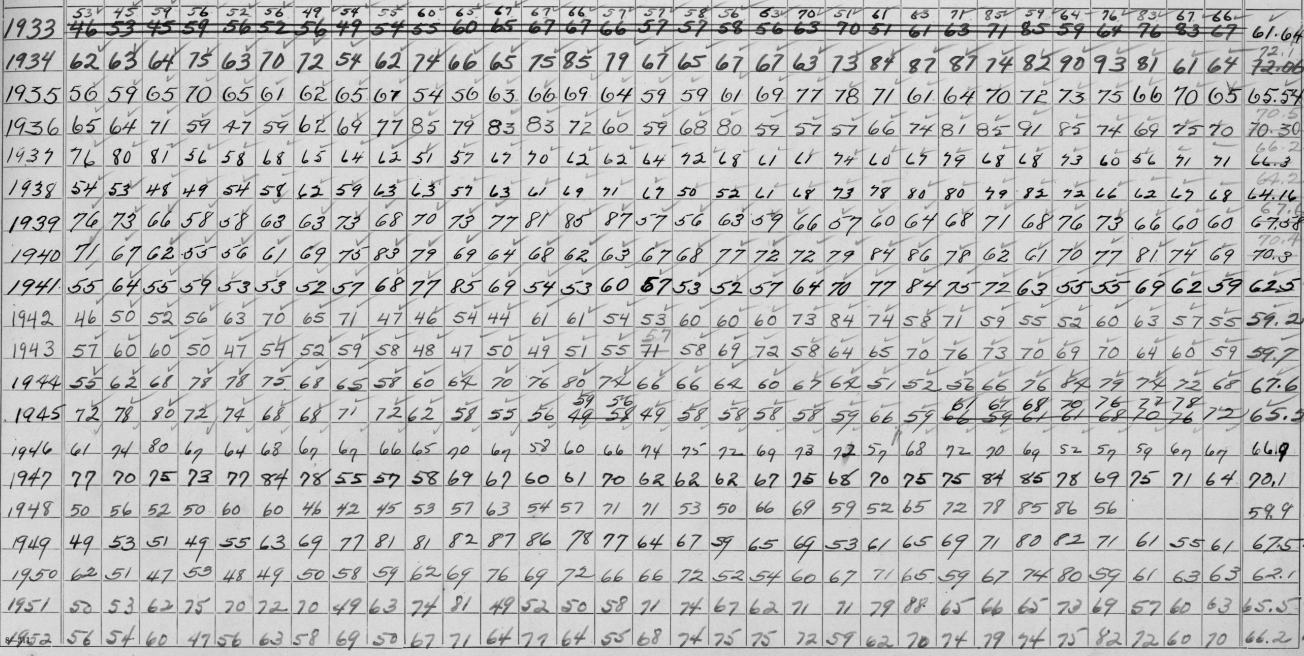 53 45 59 56 52 56 49 54 55 60 65 67 67 66 57 57 58 56 63 70 51 61 63 71 85 59 64 76 83 67 66
1933 46 53 45 59 56 52 56 49 54 55 60 65 67 67 66 57 57 58 56 63 70 51 61 63 71 85 59 64 76 83 67 61.64
72.1
1934 62 63 64 75 63 70 72 54 62 74 66 65 75 85 79 67 65 67 67 63 73 84 87 87 74 82 90 93 81 61 64 72.06
1935 56 59 65 70 65 61 62 65 67 54 56 63 66 69 64 59 59 61 69 77 78 71 61 64 70 72 73 75 66 70 65 65.54
70.5
1936 65 64 71 59 47 59 62 69 77 85 79 83 83 72 60 59 68 80 59 57 57 66 74 81 85 91 85 74 69 75 70 70.30
66.2
1937 76 80 81 56 58 68 65 64 62 51 57 67 70 62 62 64 72 68 61 61 74 60 67 79 68 68 73 60 56 71 71 66.3
64.2
1938 54 53 48 49 54 58 62 59 63 63 57 63 61 69 71 67 50 52 61 68 73 78 80 80 79 82 72 66 62 67 68 64.16
67.6
1939 76 73 66 58 58 63 63 73 68 70 73 77 81 85 87 57 56 63 59 66 57 60 64 68 71 68 76 73 66 60 60 67.58
70.4
1940 71 67 62 55 56 61 69 75 83 79 69 64 68 62 63 67 68 77 72 72 79 84 86 78 62 61 70 77 81 74 69 70.3
1941 55 64 55 59 53 53 52 57 68 77 85 69 54 53 60 67 53 52 57 64 70 77 84 75 72 63 55 55 69 62 59 62.5
1942 46 50 52 56 63 70 65 71 47 46 54 44 61 61 54 53 60 60 60 73 84 74 58 71 59 55 52 60 63 57 55 59.2
57
1943 57 60 60 50 47 54 52 59 58 48 47 50 49 51 55 71 58 69 72 58 64 65 70 76 73 70 69 70 64 60 59 59.7
1944 55 62 68 78 78 75 68 65 58 60 64 70 76 80 74 66 66 64 60 67 64 51 52 56 66 76 84 79 74 72 68 67.6
59 56 61 67 68 70 76 77 78
1945 72 78 80 72 74 68 68 71 72 62 58 55 56 49 58 49 58 58 58 58 59 66 59 66 59 61 61 68 70 76 72 65.2
1946 61 74 80 67 64 68 67 67 66 65 70 67 58 60 66 74 75 72 69 73 72 57 68 72 70 69 52 57 59 67 67 66.9
1947 77 70 75 73 77 84 78 55 57 58 69 67 60 61 70 62 62 62 67 75 68 70 75 75 84 85 78 69 75 71 64 70.1
1948 50 56 52 50 60 60 46 42 45 53 57 63 54 57 71 71 53 50 66 69 59 52 65 72 78 85 86 56 59.9
1949 49 53 51 49 55 63 69 77 81 81 82 87 86 78 77 64 67 59 65 69 53 61 65 69 71 80 82 71 61 55 61 67.5
1950 62 51 47 53 48 49 50 58 59 62 69 76 69 72 66 66 72 52 54 60 67 71 65 59 67 74 80 59 61 63 63 62.1
1951 50 53 62 75 70 72 70 49 63 74 81 49 52 50 58 71 74 67 62 71 71 79 88 65 66 65 73 69 57 60 63 65.5
1952 56 54 60 47 56 63 58 69 50 67 71 64 77 64 55 68 74 75 75 72 59 62 70 74 79 74 75 82 72 60 70 66.2